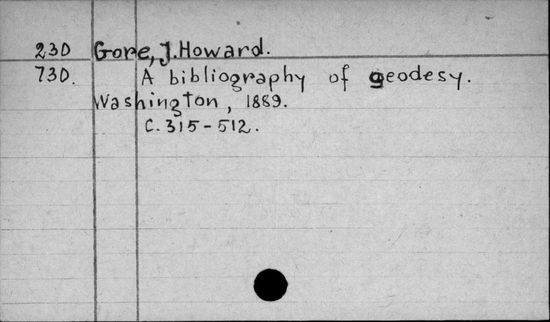 230 Gore, J. Howard.
730. A bibliography of geodesy.
Washington, 1889.
C. 315-512.